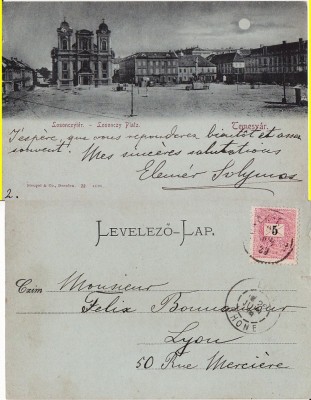 Losonczytér. – Losonczy Platz.
Temesvár.
J'espère, que vous répondrez bientôt et assez
souvent! Mes sincères salutations
Elemér Solymos
2.
LEVELEZŐ-LAP.
5
Czím
Monsieur
Felix
Lyon
50 Rue Mercière
RHONE